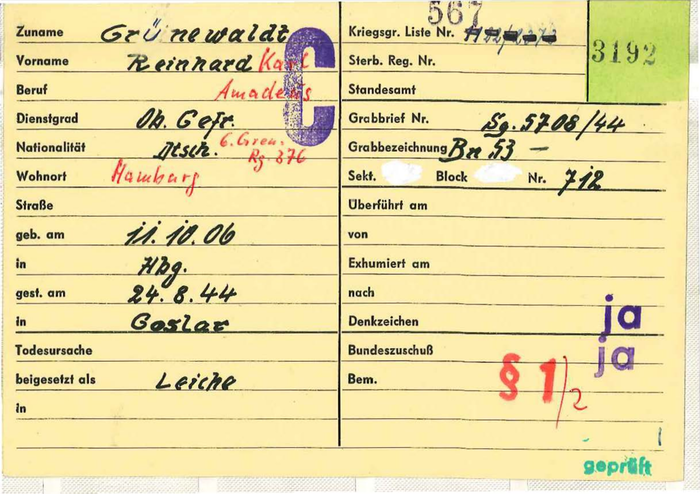 Zuname Grünewaldt
Vorname Reinhard Karl
Beruf Amadeus
Dienstgrad Ob. Gefr.
Nationalität Dtsch. 6. Gren. Rg. 376
Wohnort Hamburg
Straße
geb. am 11.10.06
in Hbg.
gest. am 24.8.44
in Goslar
Todesursache
beigesetzt als Leiche
in
C
567
Kriegsgr. Liste Nr.
3192
Sterb. Reg. Nr.
Standesamt
Grabbrief Nr. Sg. 5708/44
Grabbezeichnung Bn 53 –
Sekt. Block Nr. 712
Überführt am
von
Exhumiert am
nach
Denkzeichen ja
Bundeszuschuß ja
Bem. § 1/2
geprüft